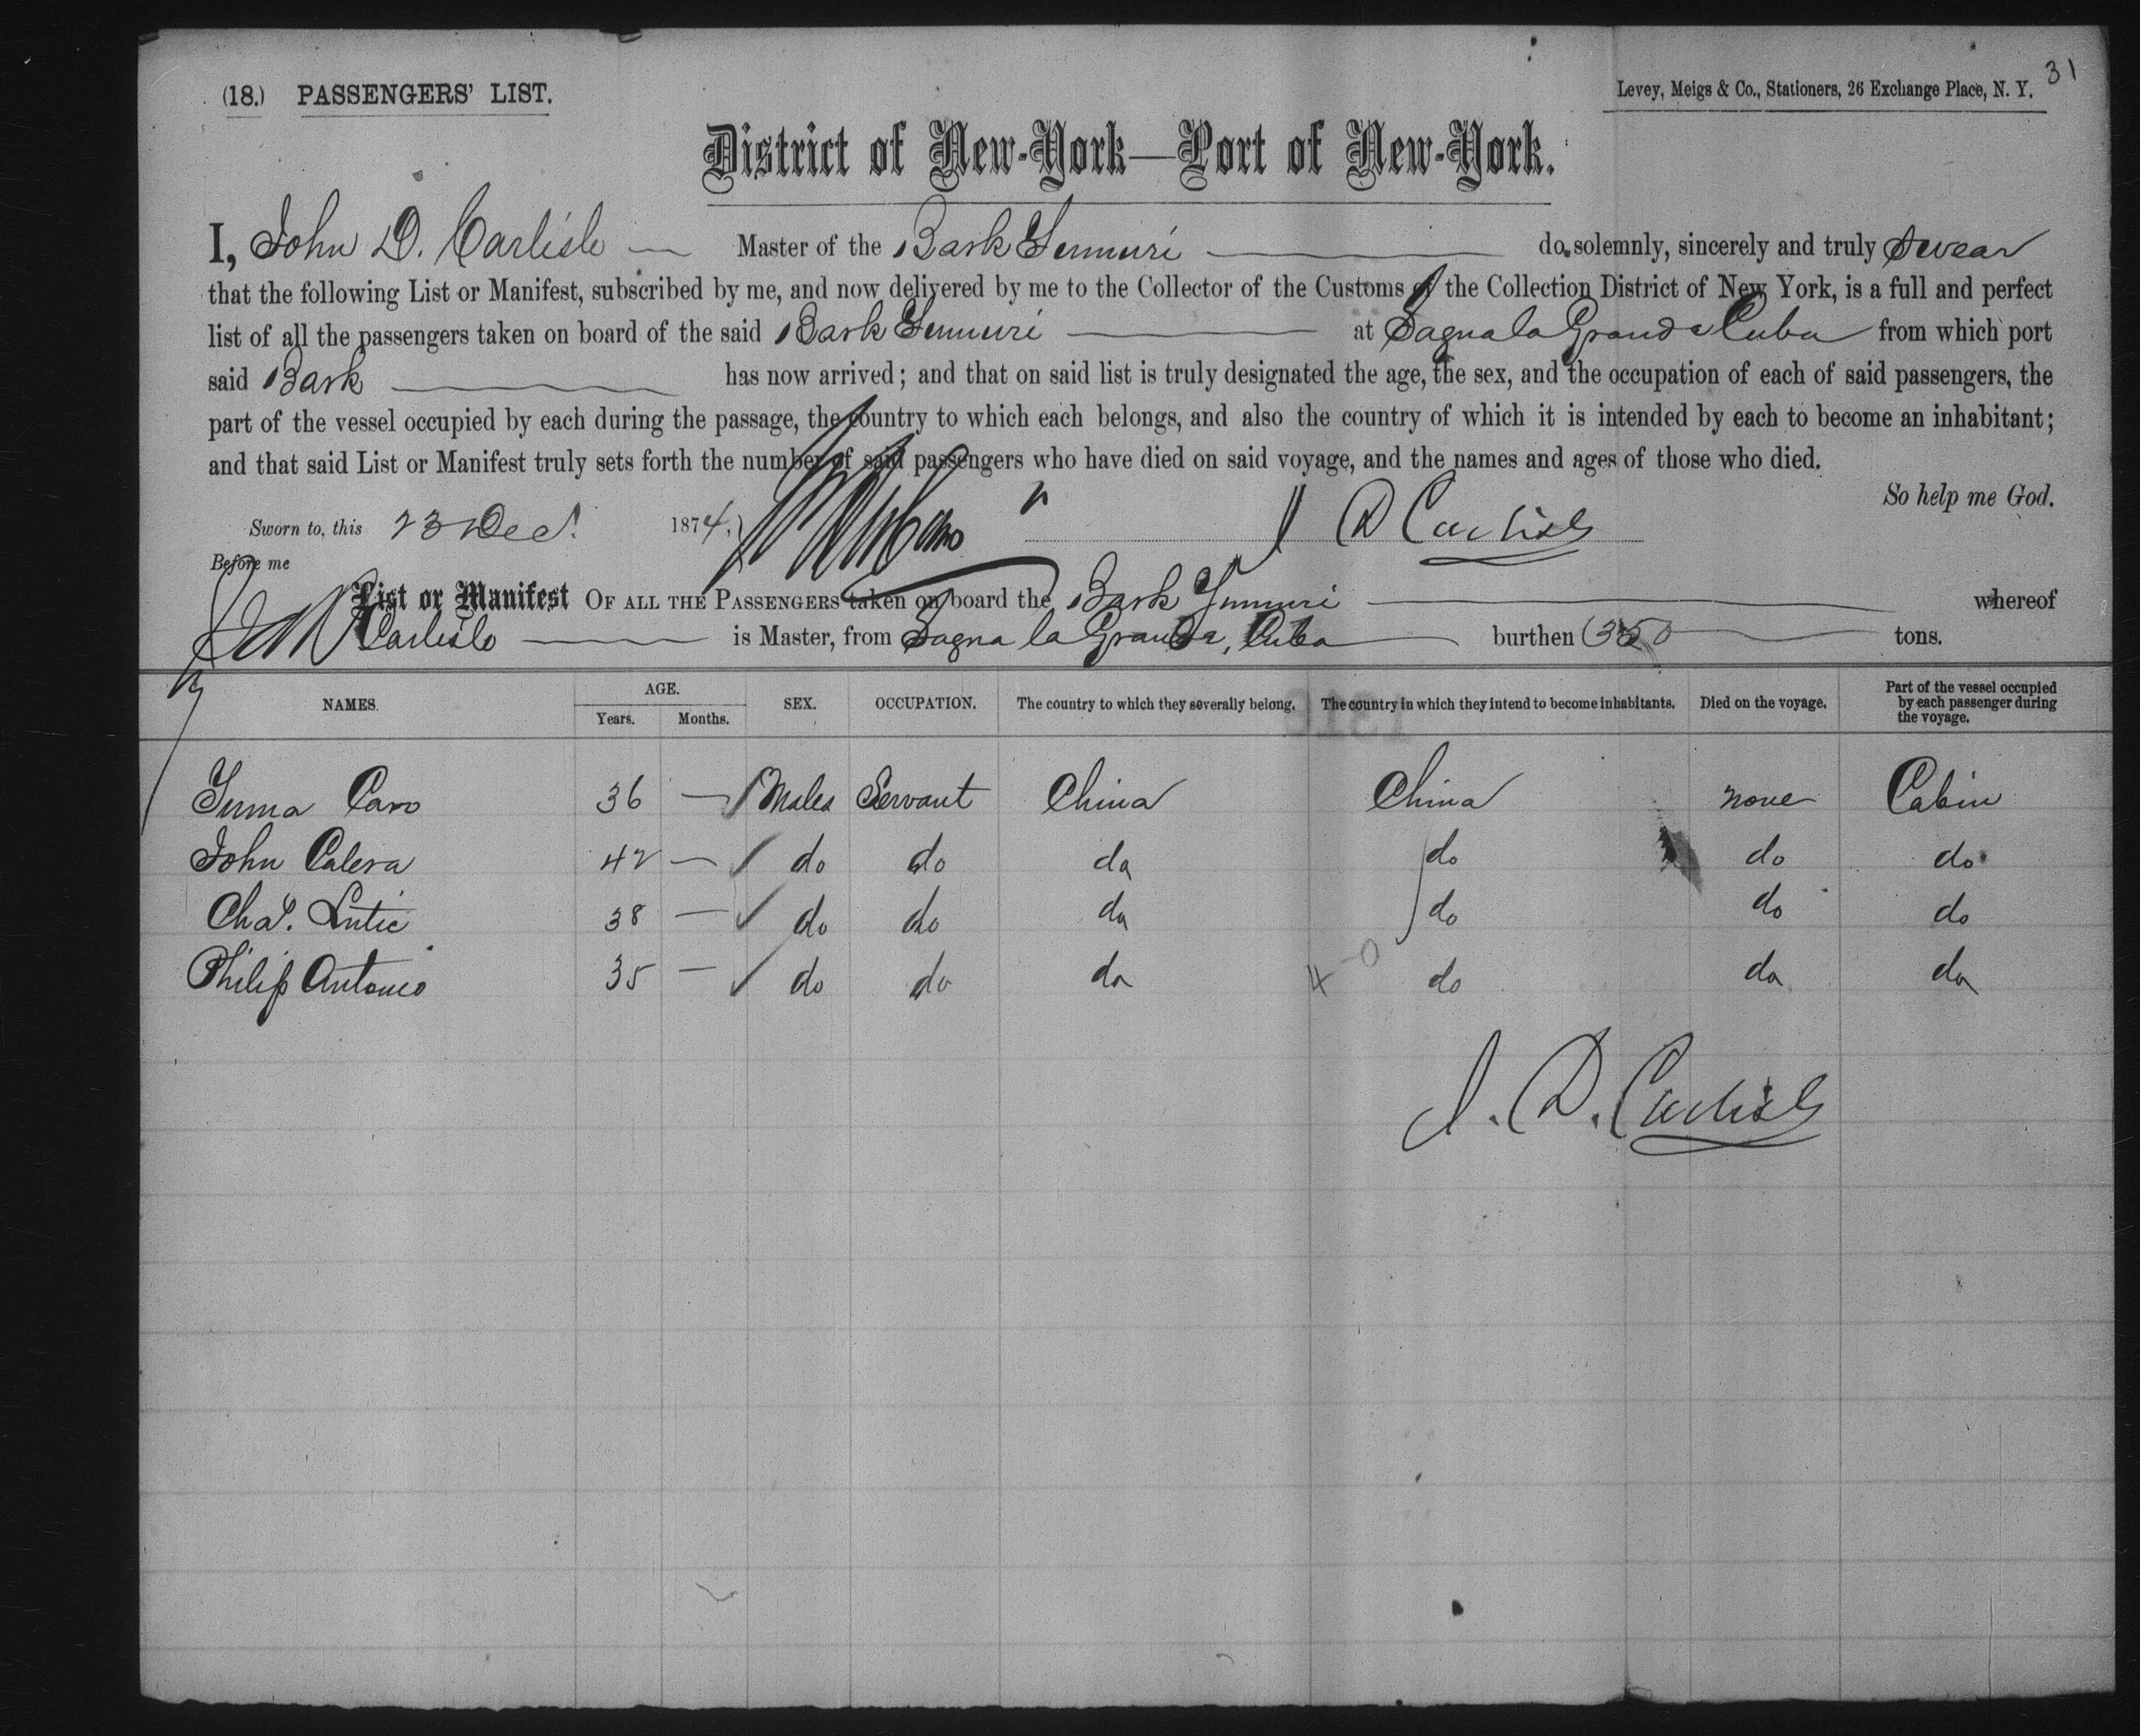 31
(18.) PASSENGERS' LIST. Levey, Meigs & Co., Stationers, 26 Exchange Place, N. Y.
District of New-York—Port of New-York.
I, John D. Carlisle Master of the Bark Yumuri do solemnly, sincerely and truly swear
that the following List or Manifest, subscribed by me, and now delivered by me to the Collector of the Customs of the Collection District of New York, is a full and perfect
list of all the passengers taken on board of the said Bark Yumuri at Sagua la Grande Cuba from which port
said Bark has now arrived; and that on said list is truly designated the age, the sex, and the occupation of each of said passengers, the
part of the vessel occupied by each during the passage, the country to which each belongs, and also the country of which it is intended by each to become an inhabitant;
and that said List or Manifest truly sets forth the number of said passengers who have died on said voyage, and the names and ages of those who died.
So help me God.
Sworn to, this 23 Dec. 1874. J D Carlisle
Before me
List or Manifest OF ALL THE PASSENGERS taken on board the Bark Yumuri whereof
Carlisle is Master, from Sagua la Grande, Cuba burthen 350 tons.
NAMES. AGE. Years. Months. SEX. OCCUPATION. The country to which they severally belong. The country in which they intend to become inhabitants. Died on the voyage. Part of the vessel occupied by each passenger during the voyage.
Caro 36 — Males Servant China China none Cabin
John Calera 42 — do do do do do do
Chas. 38 — do do do do do do
Philip Antonio 35 — do do do do do do
4 0
J. D. Carlisle